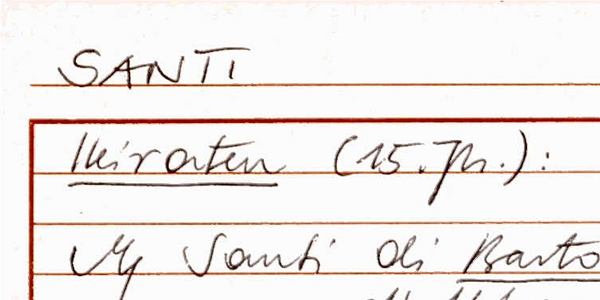 SANTI
Heiraten (15. Jh.):
Santi di Barto